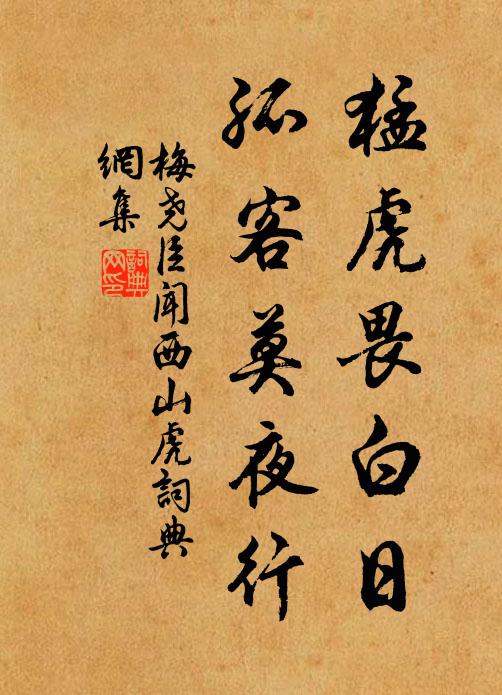 猛虎畏白日
孤客莫夜行
梅尧臣闻西山虎詞典
網集
詞典
网印